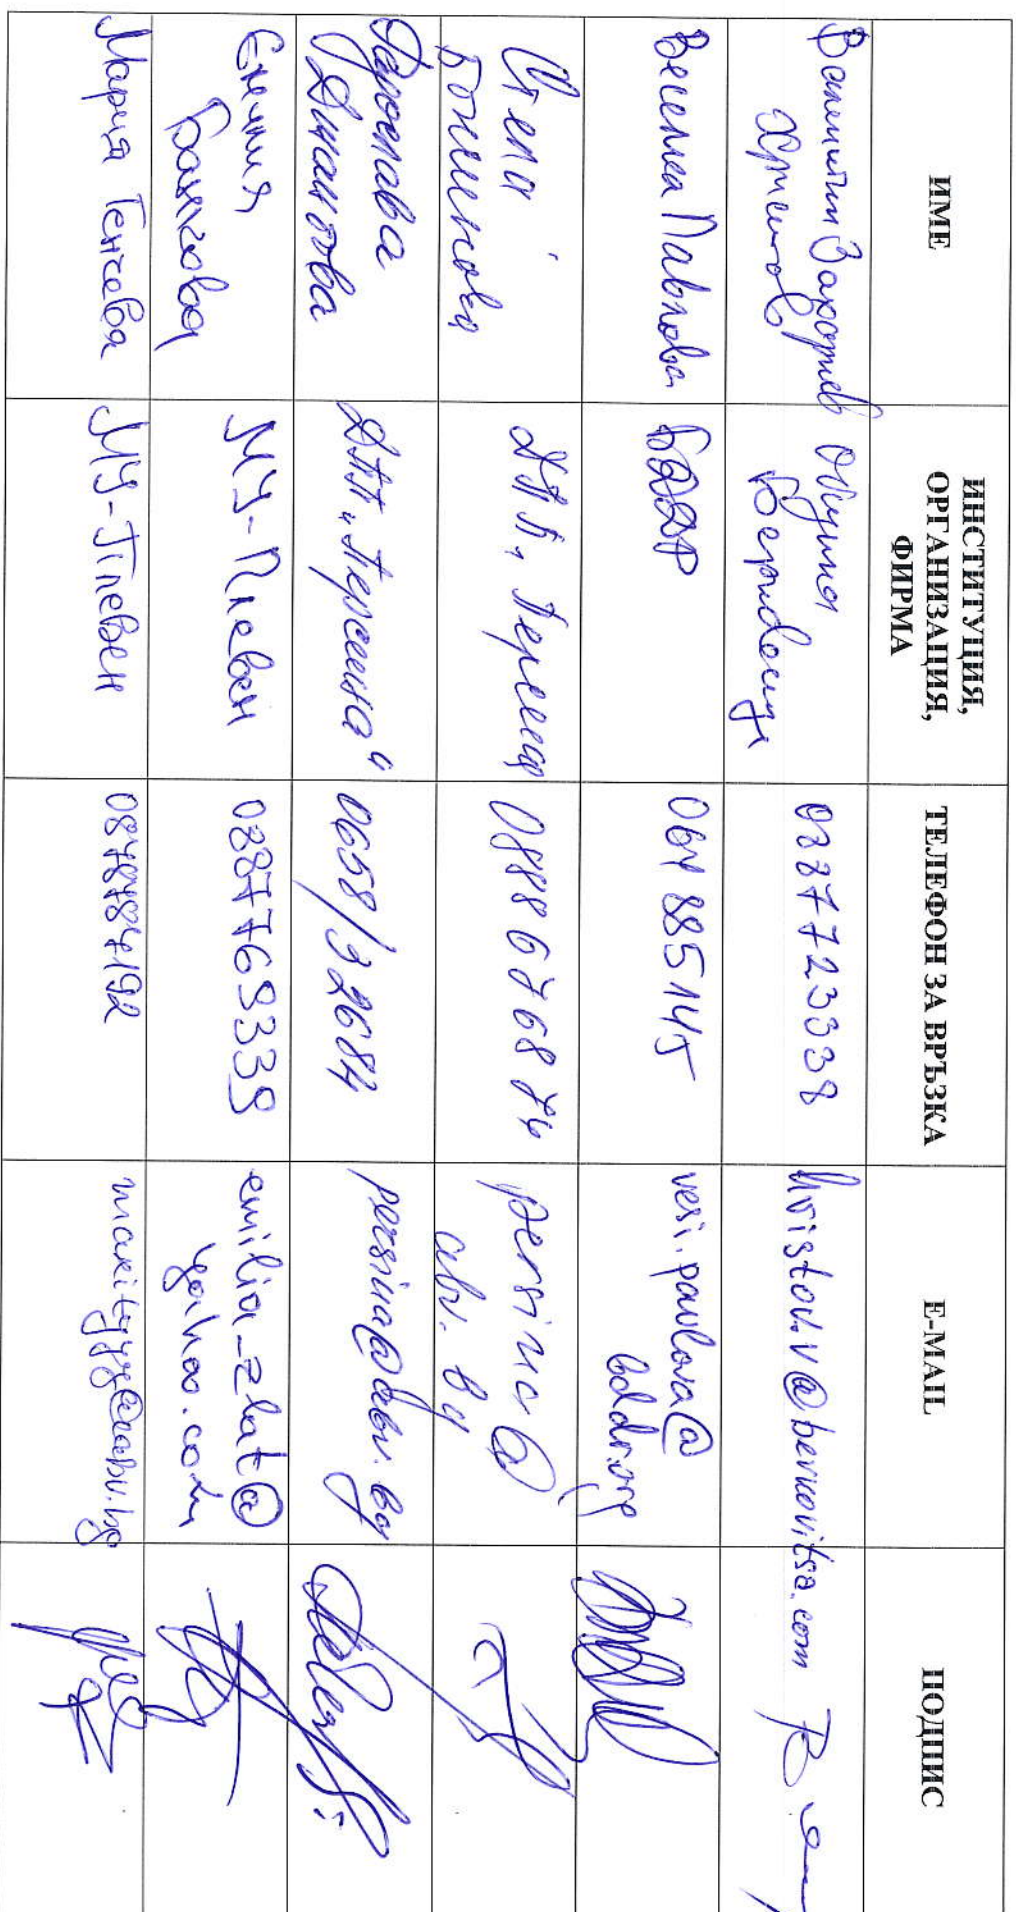 ИМЕ
ИНСТИТУЦИЯ,
ОРГАНИЗАЦИЯ,
ФИРМА
ТЕЛЕФОН ЗА ВРЪЗКА
E-MAIL
ПОДПИС
Валентин Захариев
Христов
Община
Берковица
0887723338
hristov.v@berkovitsa.com
Веселка Павлова
БДДР
064 885145
vesi.pavlova@
bddr.org
Стела
Божинова
ДПП "Персина
0888 67 68 74
persina@
abv.bg
Дарослава
Диманова
ДПП "Персина"
0658/32684
persina@abv.bg
Емилия
Банкова
МУ-Плевен
0887769339
emilia_zlat@
yahoo.com
Мария Генчева
МУ-Плевен
0878784192